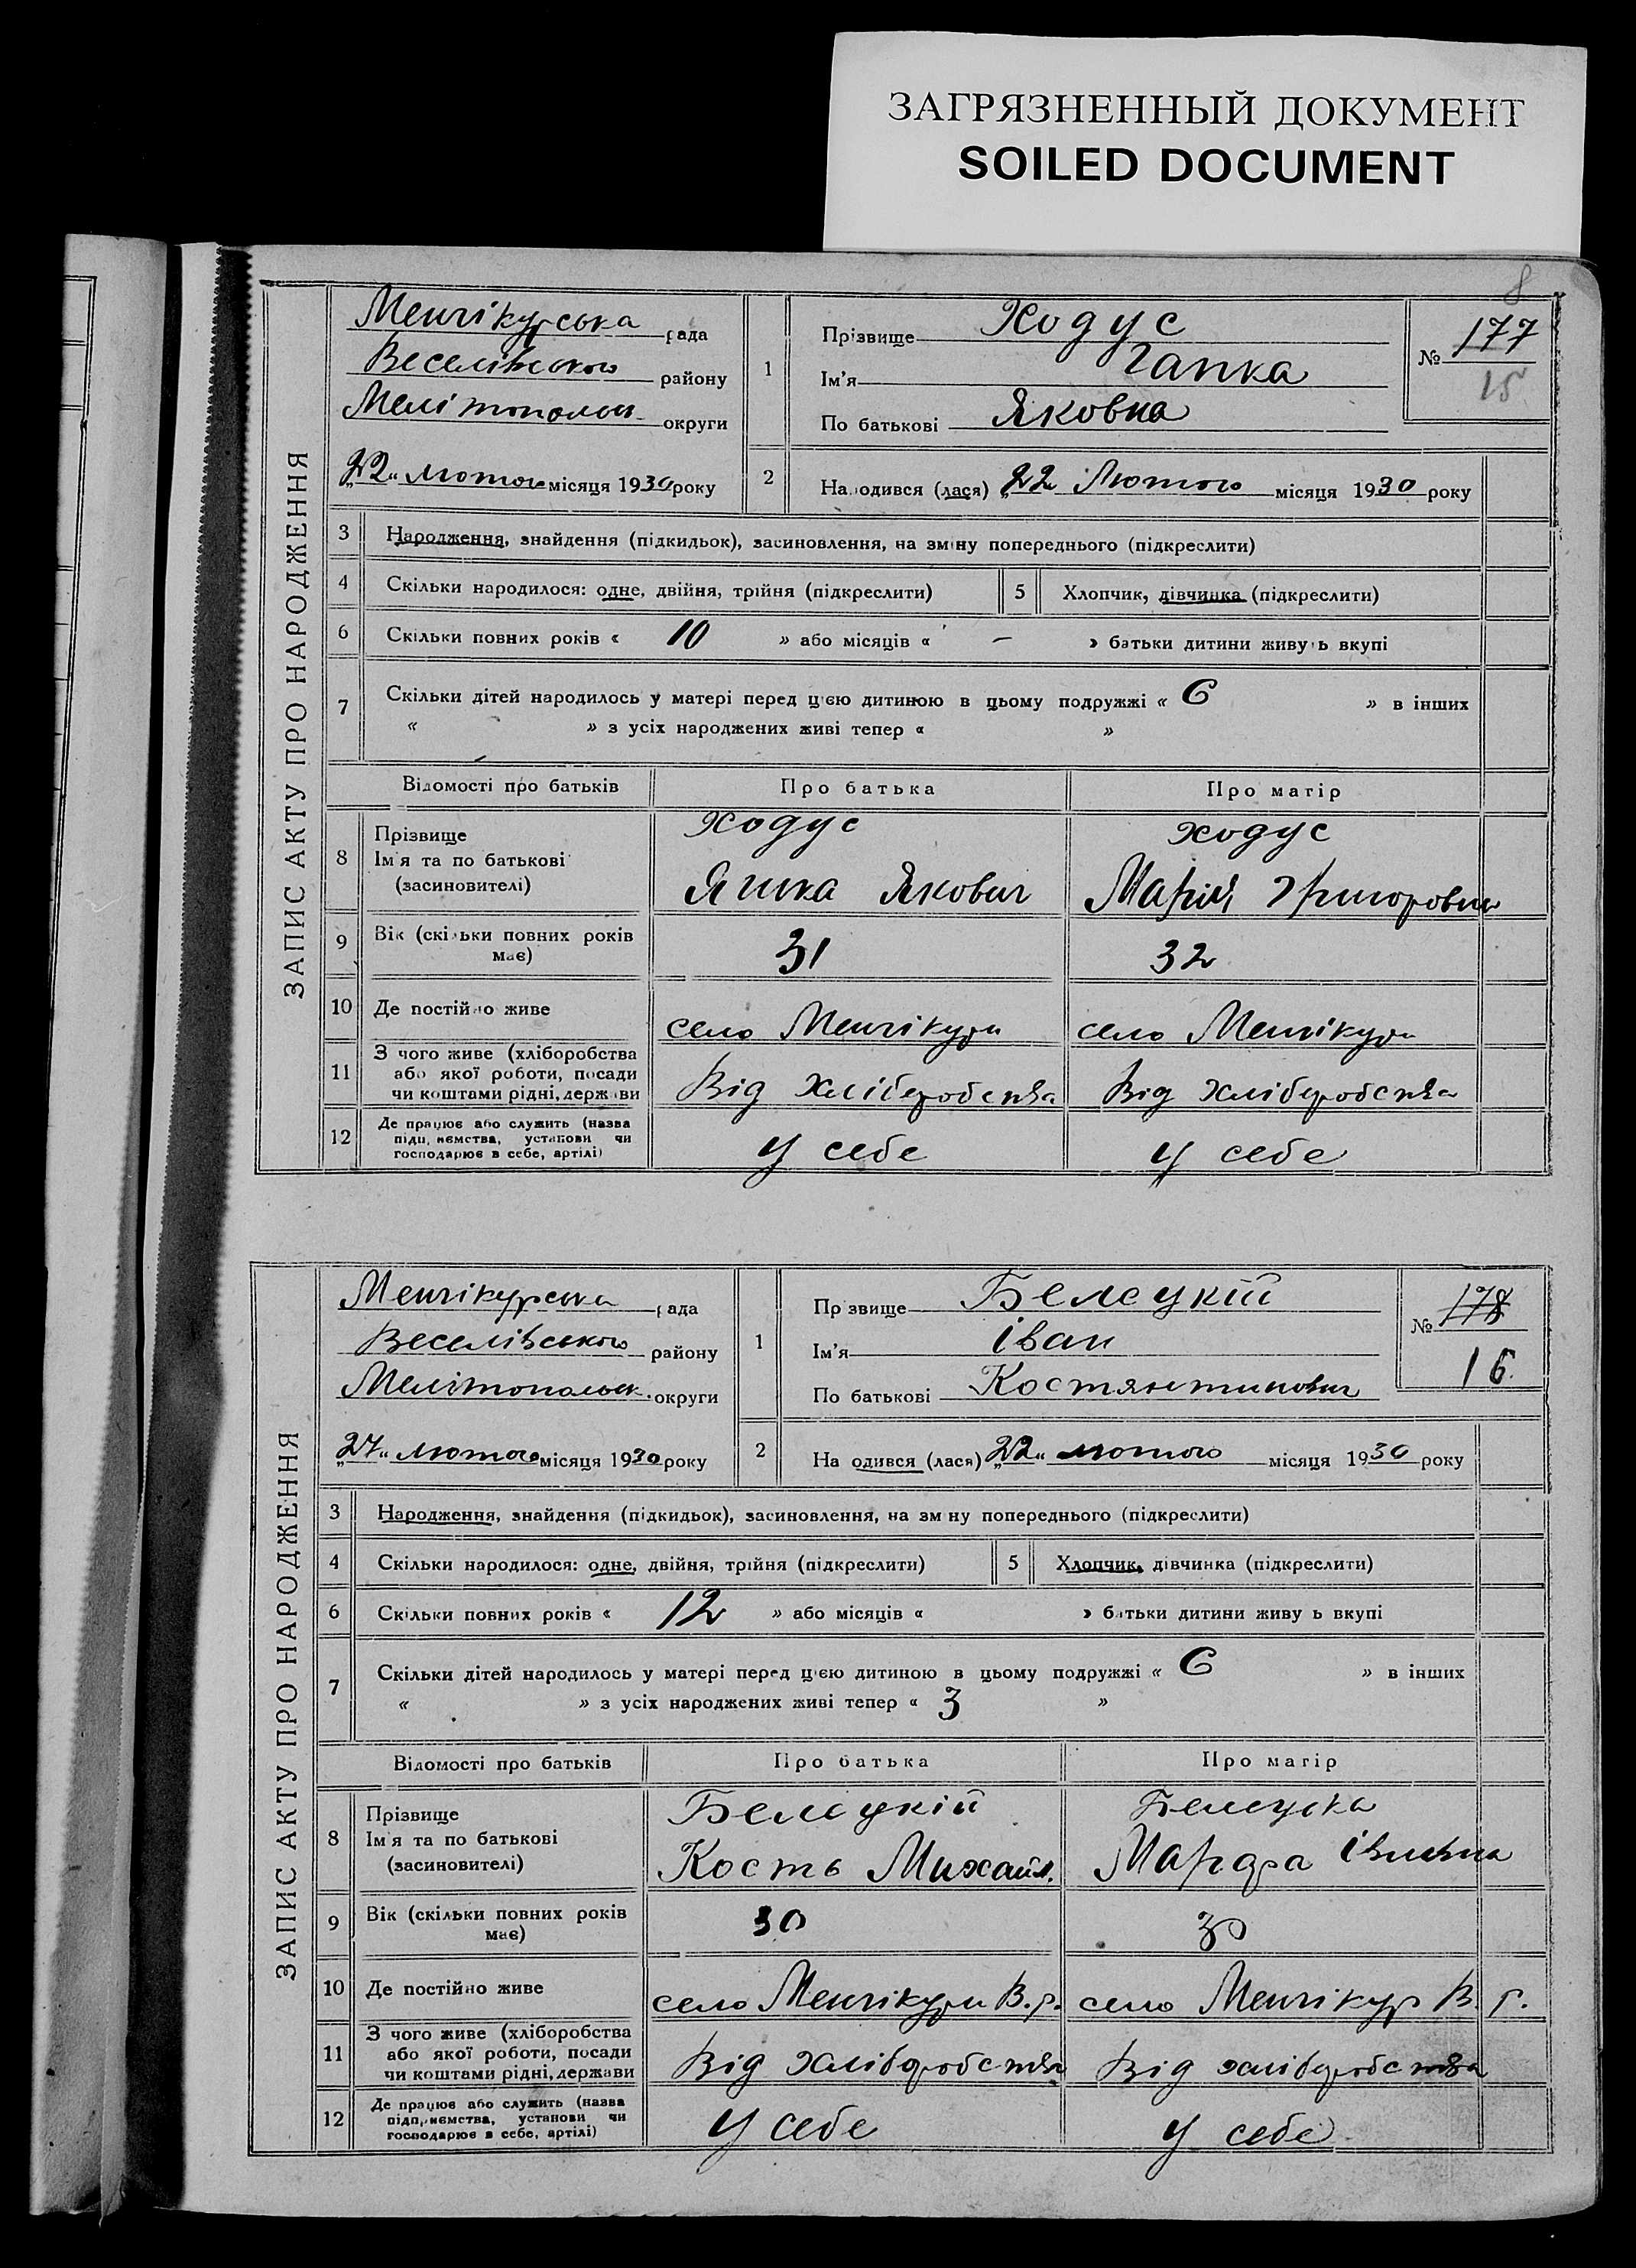 ЗАГРЯЗНЕННЫЙ ДОКУМЕНТ
SOILED DOCUMENT
8
ЗАПИС АКТУ ПРО НАРОДЖЕННЯ
Менчікурська рада
Веселівського району
Мелітопольск. округи
"22" лютого місяця 1930 року
1
Прізвище Ходус
Ім'я Гапка
По батькові Яковна
№ 177
15
2
Народився (лася) "22" Лютого місяця 1930 року
3 Народження, знайдення (підкидьок), засиновлення, на зміну попереднього (підкреслити)
4 Скільки народилося: одне, двійня, трійня (підкреслити) 5 Хлопчик, дівчинка (підкреслити)
6 Скільки повних років « 10 » або місяців « – » батьки дитини живуть вкупі
7 Скільки дітей народилось у матері перед цією дитиною в цьому подружжі « 6 » в інших
« » з усіх народжених живі тепер « »
Відомості про батьків Про батька Про матір
8 Прізвище Ходус Ходус
Ім'я та по батькові
(засиновителі) Яшка Якович Марія Григоровна
9 Вік (скільки повних років має) 31 32
10 Де постійно живе село Менчікури село Менчікури
11 З чого живе (хліборобства
або якої роботи, посади
чи коштами рідні, держави Від Хліборобства Від Хліборобства
12 Де працює або служить (назва
підприємства, установи чи
господарює в себе, артілі) У себе У себе
ЗАПИС АКТУ ПРО НАРОДЖЕННЯ
Менчікурська рада
Веселівського району
Мелітопольск. округи
"27" лютого місяця 1930 року
1
Прізвище Белецкій
Ім'я Іван
По батькові Костянтинович
№ 178
16.
2
Народився (лася) "22" лютого місяця 1930 року
3 Народження, знайдення (підкидьок), засиновлення, на зміну попереднього (підкреслити)
4 Скільки народилося: одне, двійня, трійня (підкреслити) 5 Хлопчик, дівчинка (підкреслити)
6 Скільки повних років « 12 » або місяців « » батьки дитини живуть вкупі
7 Скільки дітей народилось у матері перед цією дитиною в цьому подружжі « 6 » в інших
« » з усіх народжених живі тепер « 3 »
Відомості про батьків Про батька Про матір
8 Прізвище Белецкій Белецка
Ім'я та по батькові
(засиновителі) Кость Михайл. Марфа Івливна
9 Вік (скільки повних років має) 30 30
10 Де постійно живе село Менчікури В.р. село Менчікур В. р.
11 З чого живе (хліборобства
або якої роботи, посади
чи коштами рідні, держави Від хліборобства Від хліборобства
12 Де працює або служить (назва
підприємства, установи чи
господарює в себе, артілі) У себе У себе